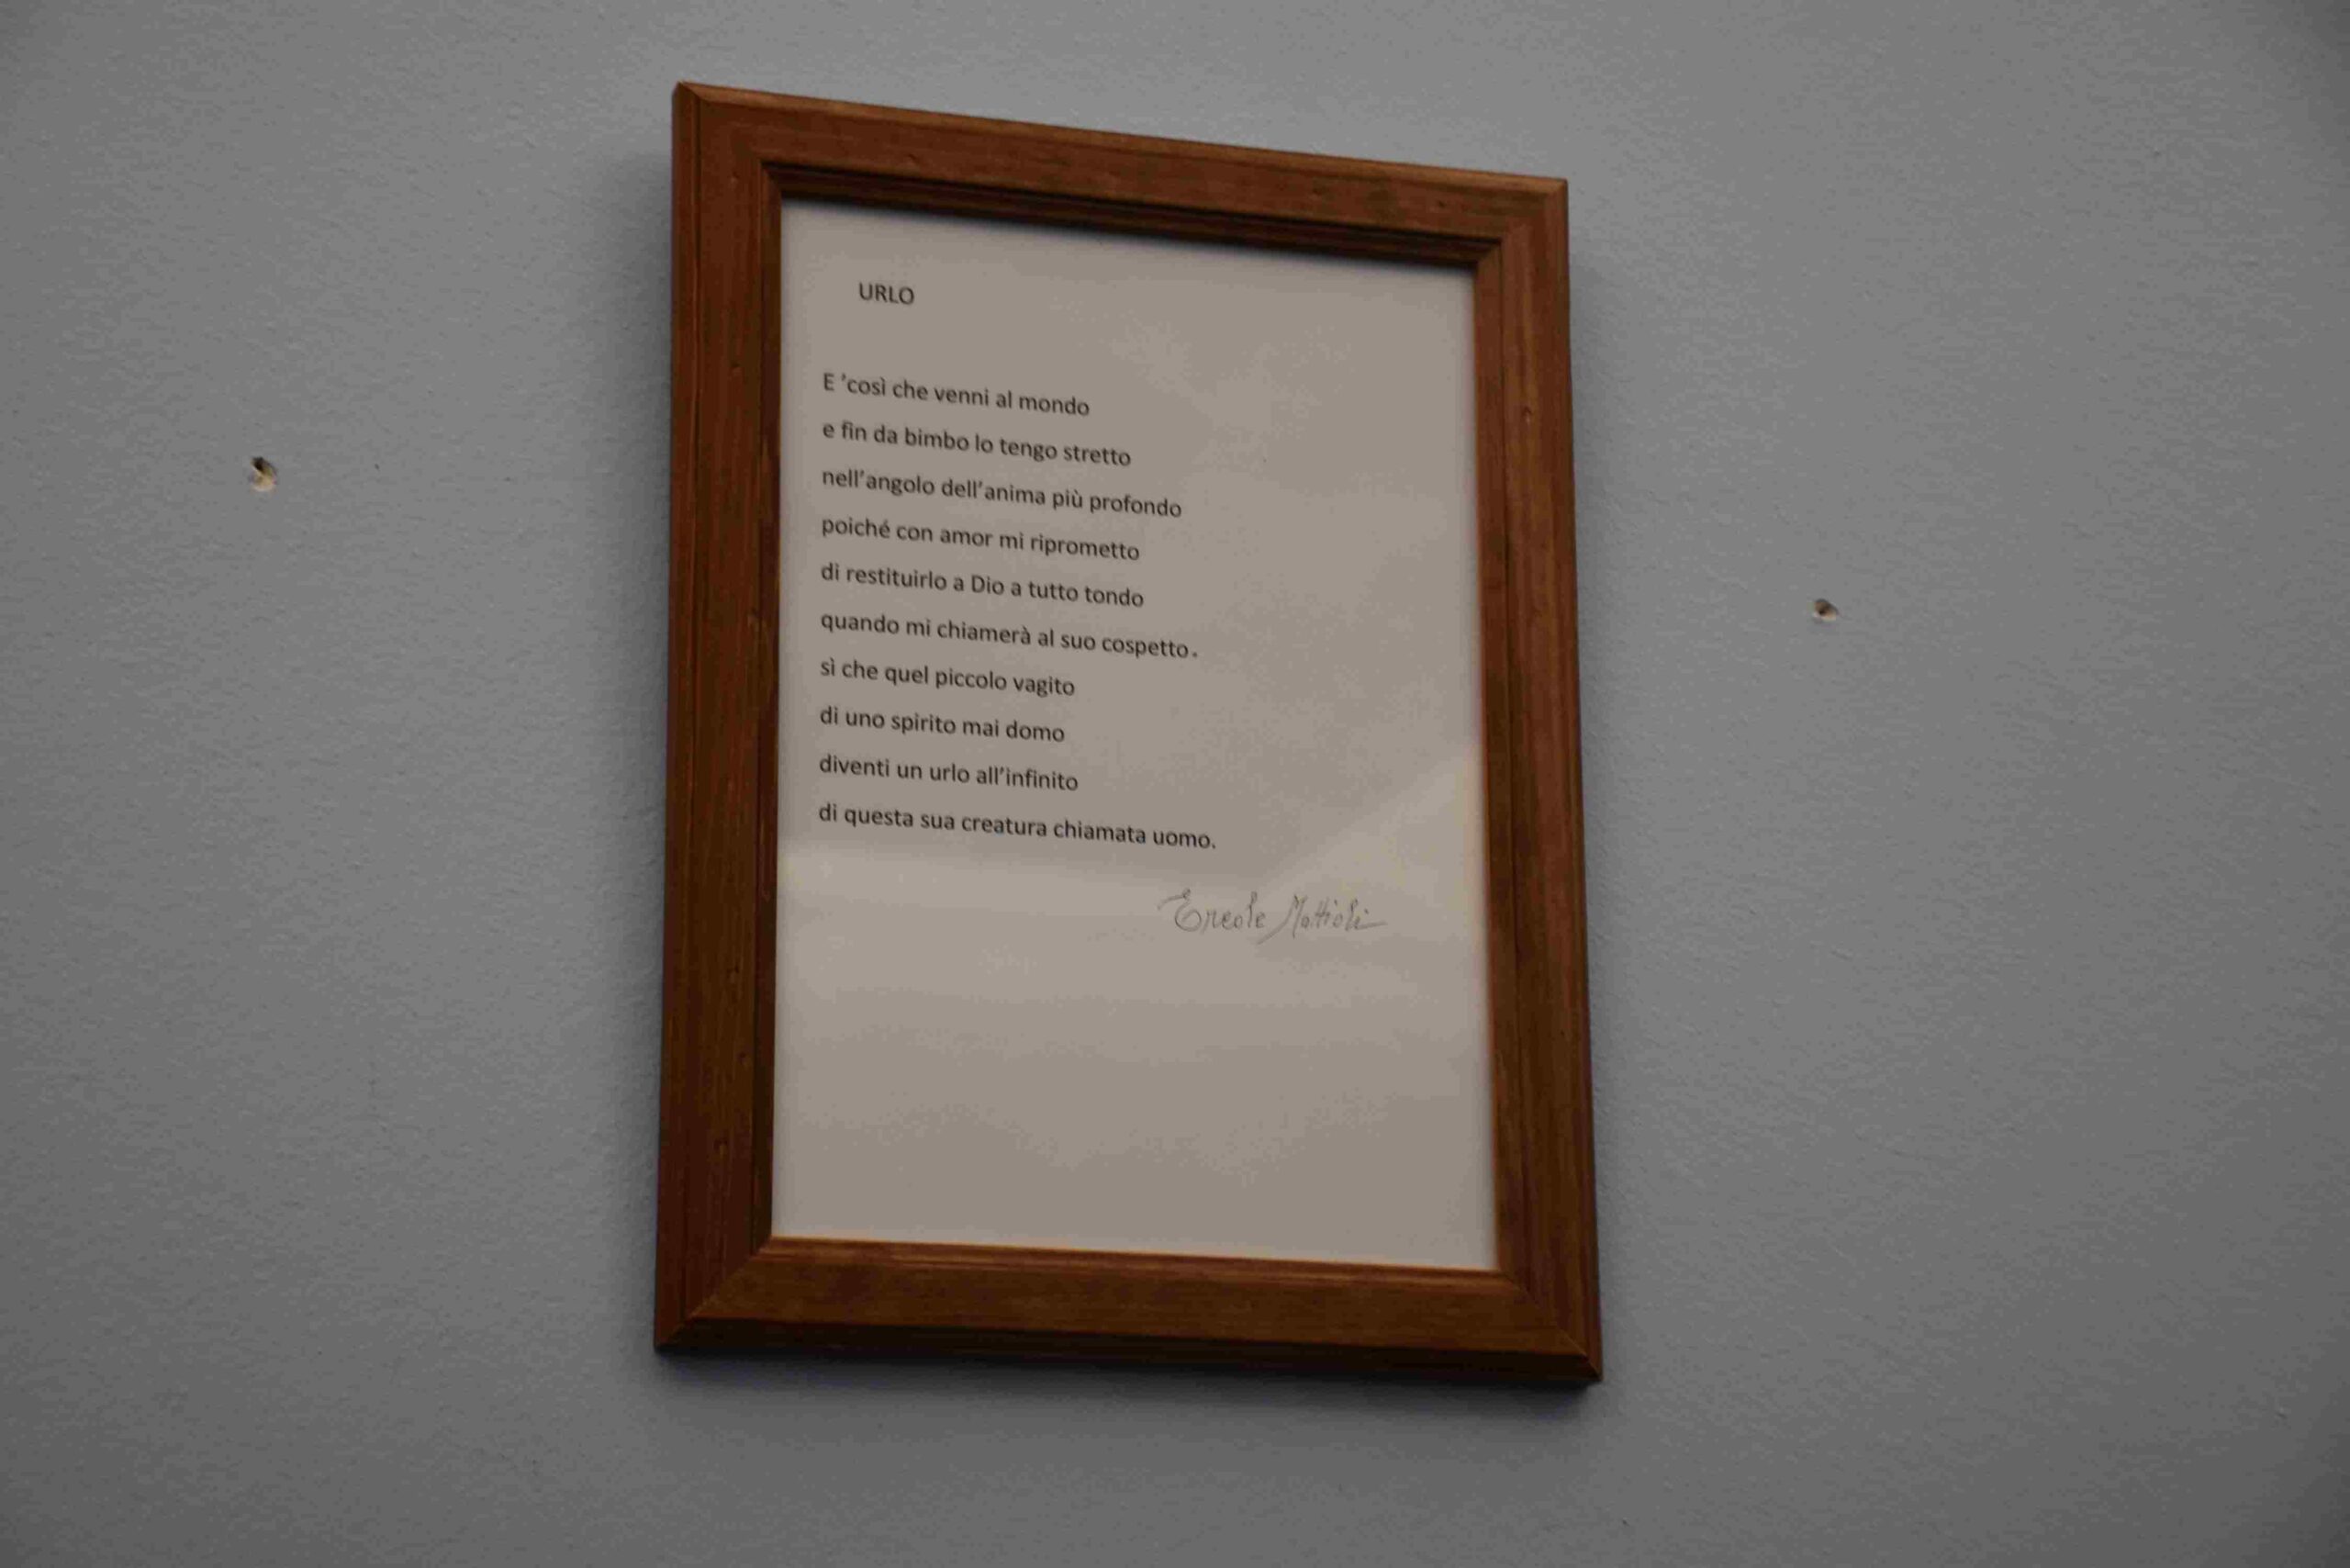 URLO
E ’così che venni al mondo
e fin da bimbo lo tengo stretto
nell’angolo dell’anima più profondo
poiché con amor mi riprometto
di restituirlo a Dio a tutto tondo
quando mi chiamerà al suo cospetto.
sì che quel piccolo vagito
di uno spirito mai domo
diventi un urlo all’infinito
di questa sua creatura chiamata uomo.
Ercole Mattioli